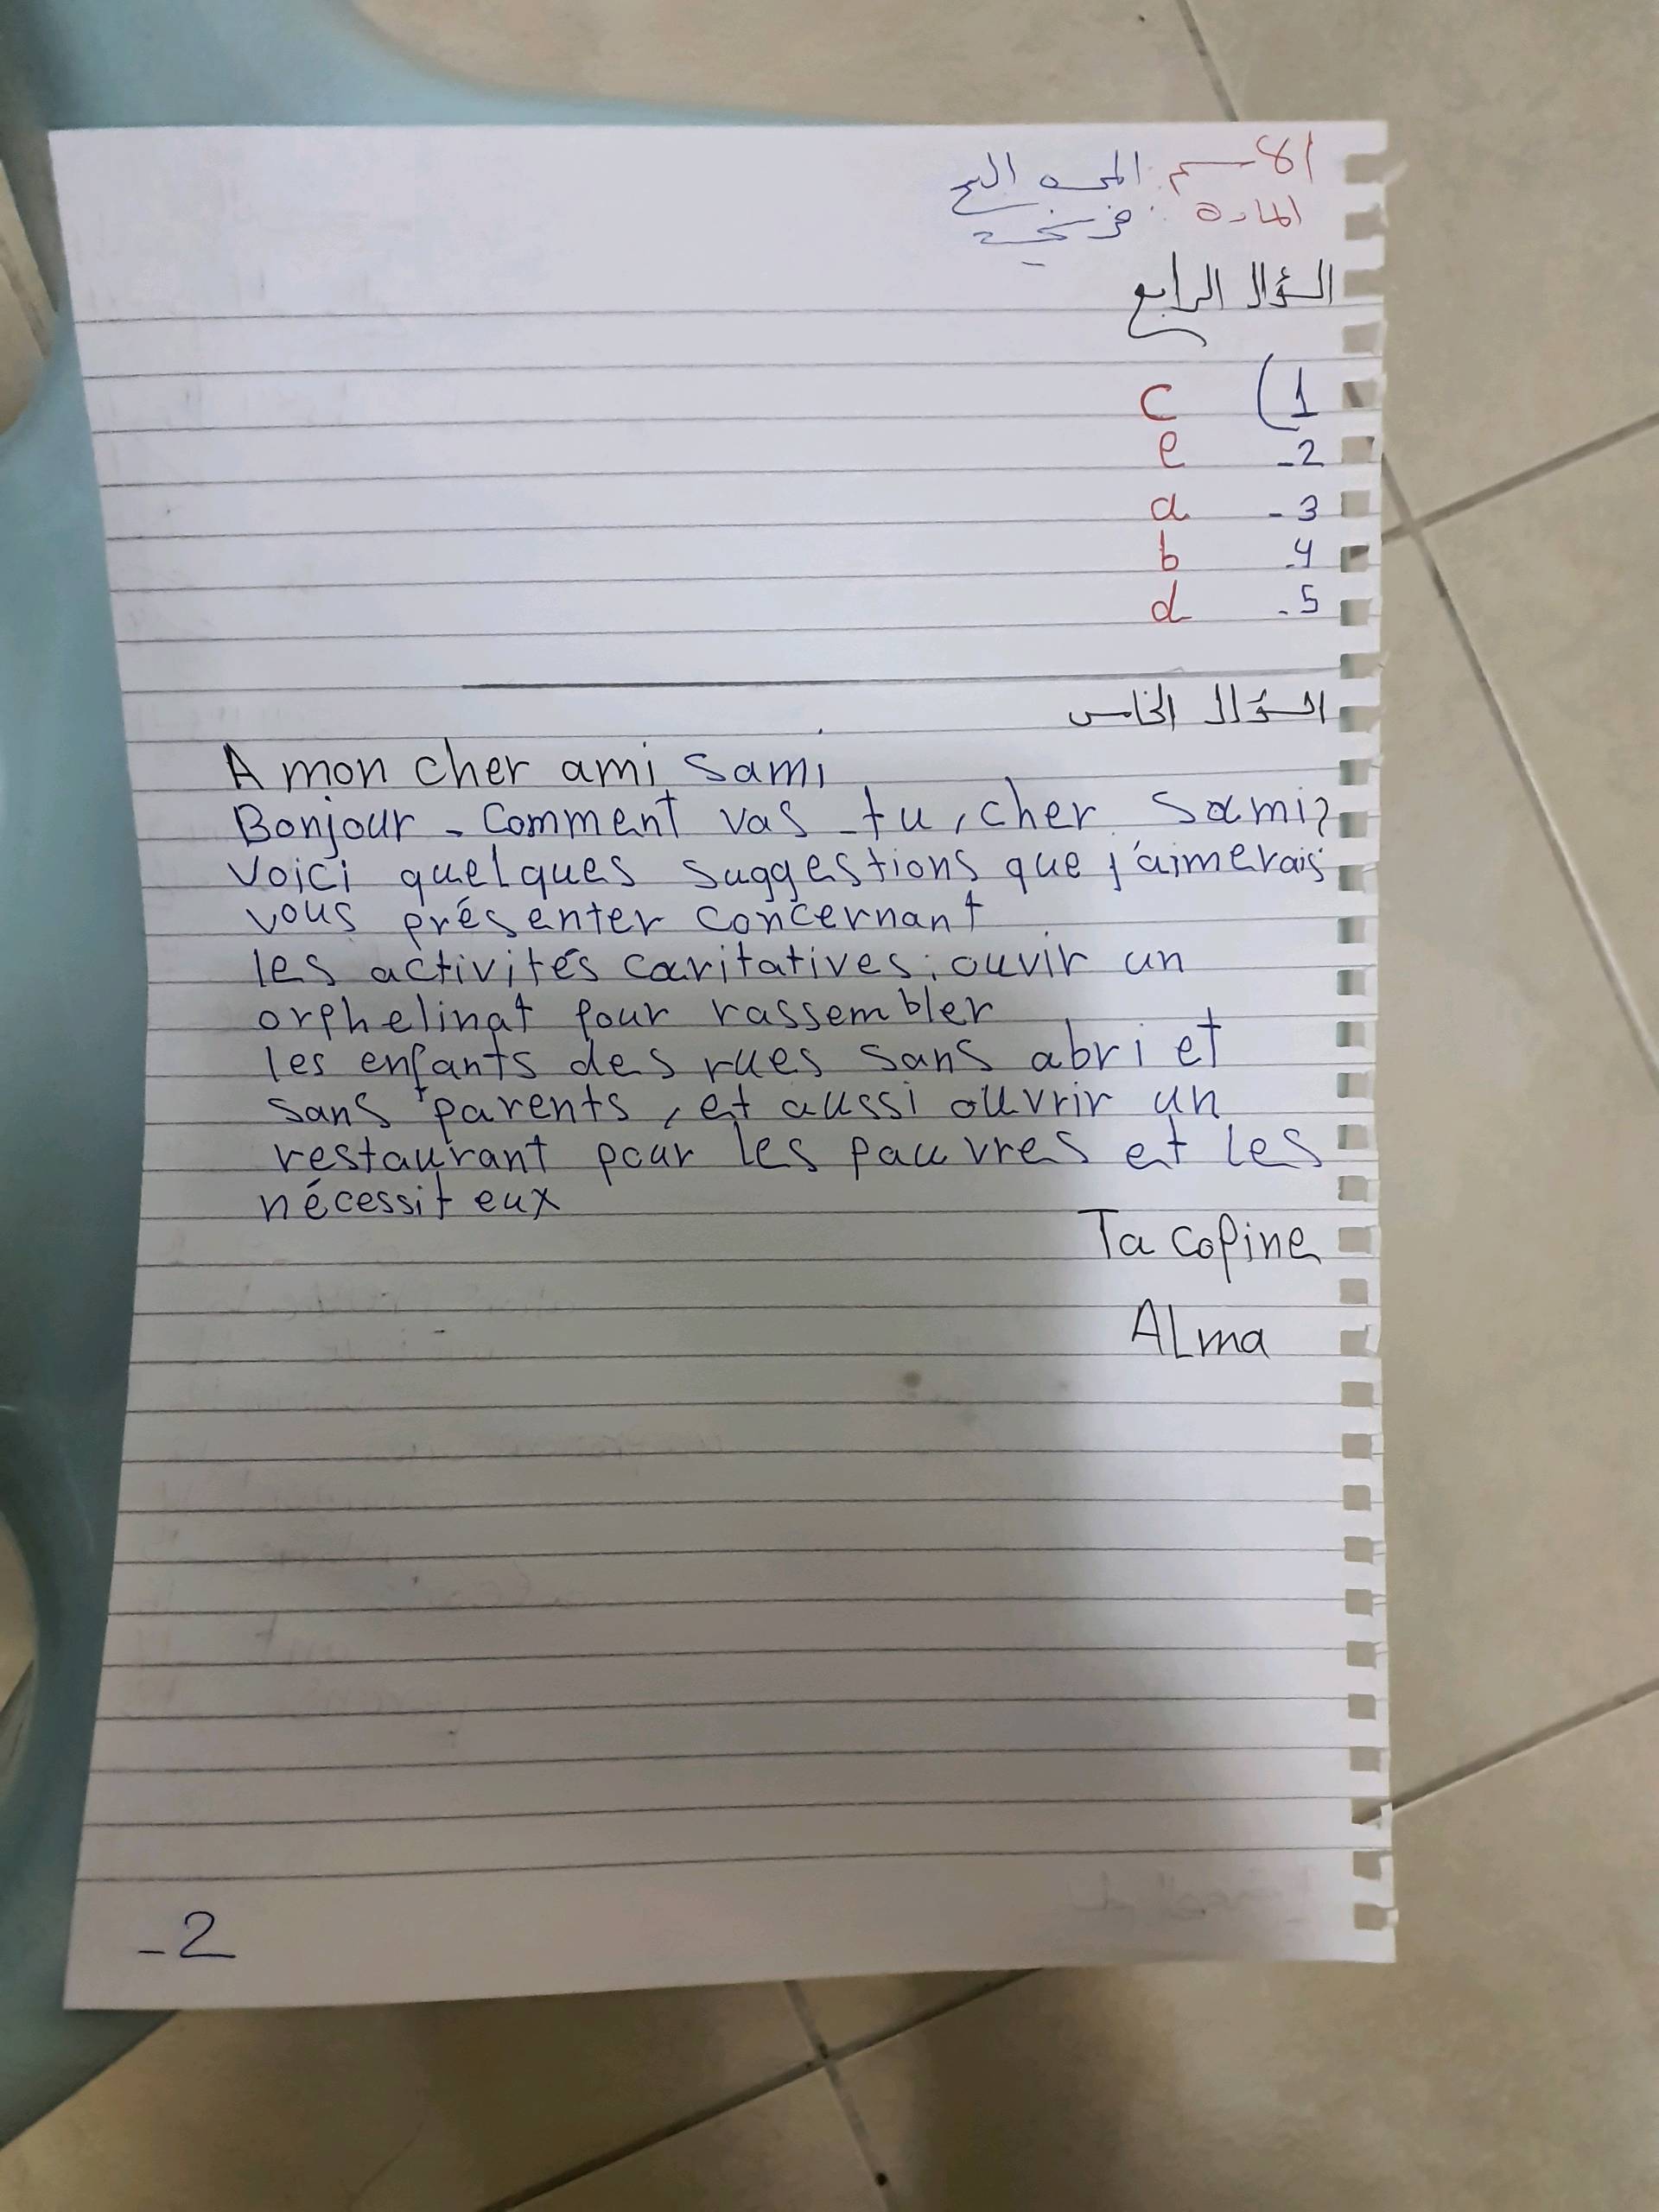 الاسم:
المادة: فرنجي
السؤال الرابع
1) c
2- e
3- a
4- b
5- d
السؤال الخامس
A mon cher ami Sami
Bonjour - Comment vas-tu, cher Sami?
Voici quelques suggestions que j'aimerais
vous présenter concernant
les activités caritatives: ouvir un
orphelinat pour rassembler
les enfants des rues sans abri et
sans parents, et aussi ouvrir un
restaurant pour les pauvres et les
nécessiteux
Ta copine
ALma
-2